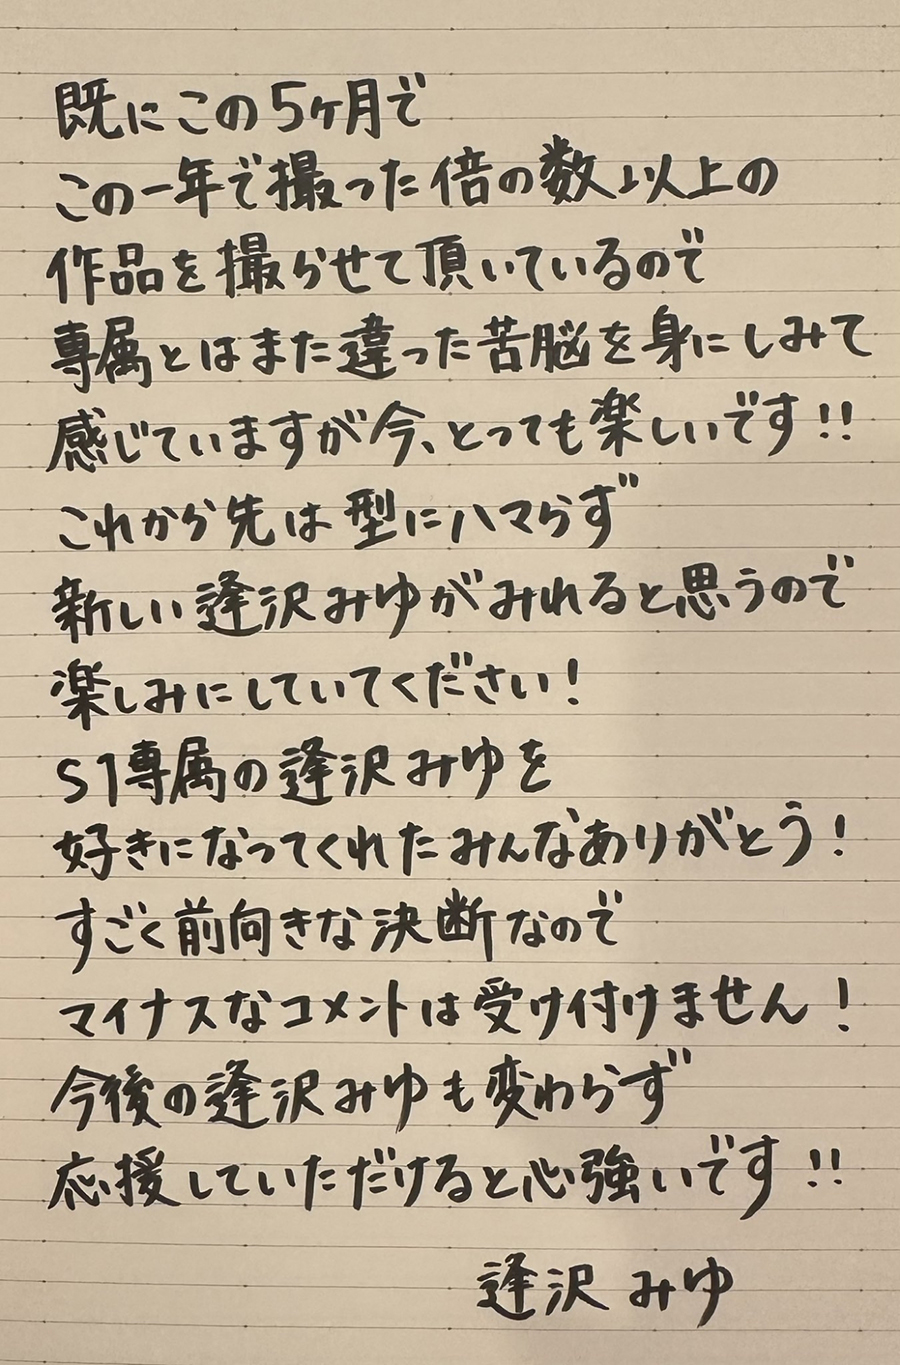 既にこの5ヶ月で
この一年で撮った倍の数以上の
作品を撮らせて頂いているので
専属とはまた違った苦脳を身にしみて
感じていますが今、とっても楽しいです!!
これから先は型にハマらず
新しい逢沢みゆがみれると思うので
楽しみにしていてください!
S1専属の逢沢みゆを
好きになってくれたみんなありがとう!
すごく前向きな決断なので
マイナスなコメントは受け付けません!
今後の逢沢みゆも変わらず
応援していただけると心強いです!!
逢沢 みゆ